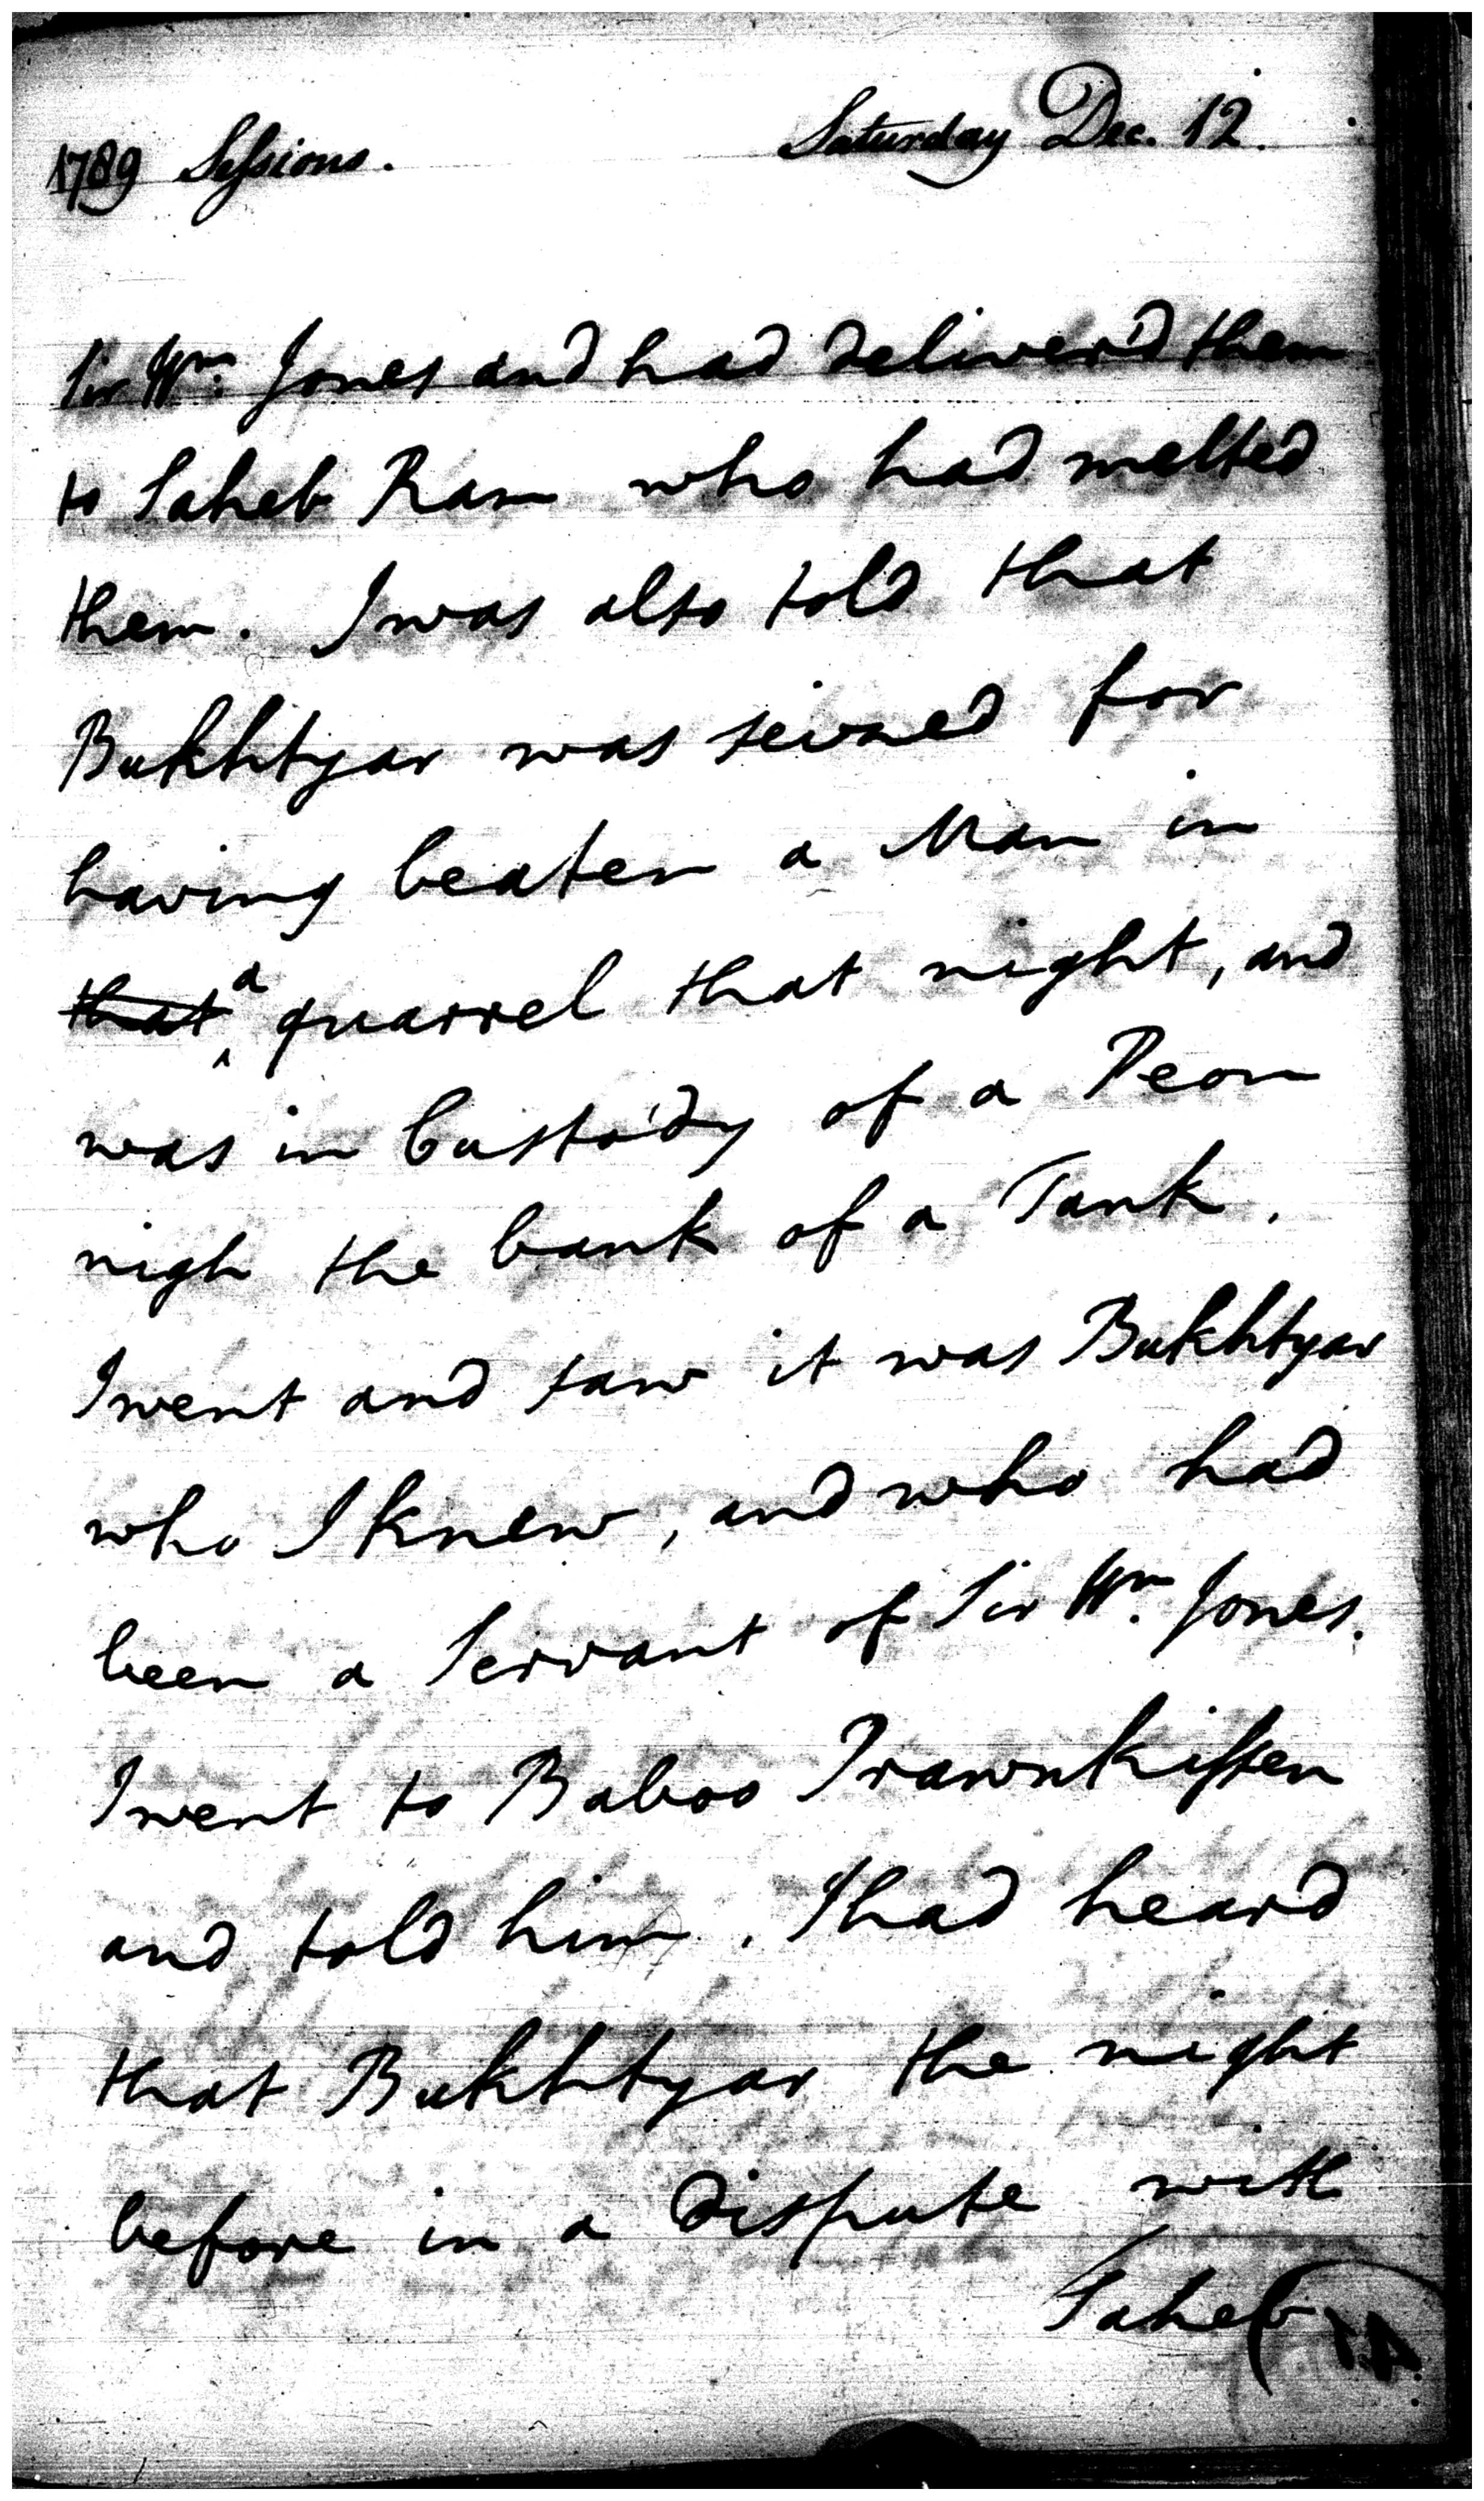 1789 Sessions. Saturday Dec. 12.
Sir Wm. Jones and had deliver'd them
to Saheb Ram who had melted
them. I was also told that
Bukhtyar was seized for
having beaten a Man in
that a quarrel that night, and
was in Custody of a Peon
nigh the bank of a Tank.
I went and saw it was Bukhtyar
who I knew, and who had
been a Servant of Sir Wm. Jones.
I went to Baboo Prawnkissen
and told him. I had heard
that Bukhtyar the night
before in a Dispute with
Saheb